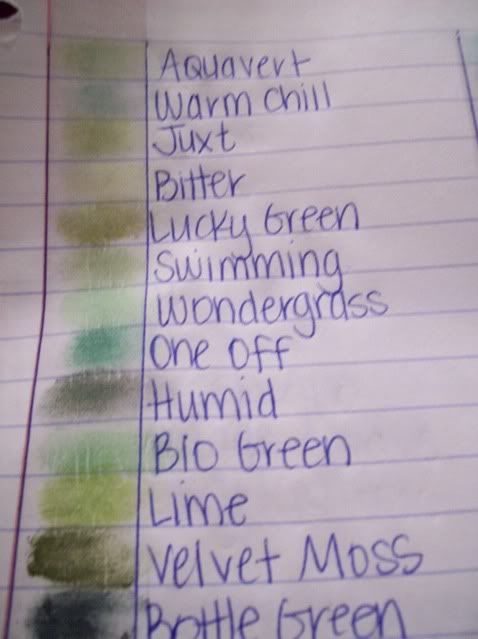 Aquavert
Warm Chill
Juxt
Bitter
Lucky Green
Swimming
Wondergrass
One Off
Humid
Bio Green
Lime
Velvet Moss
Bottle Green